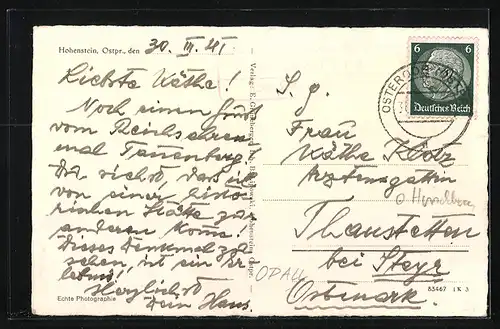 Hohenstein, Ostpr., den 30. III. 41
Liebste Käthe!
Noch einen Gruß
vom Reichsehren
mal Tannenberg.
Du siehst, daß ich
von einer histo-
rischen Stätte zur
anderen komme!
Dieses Denkmal zu
sehen, ist ein Er-
lebnis!
Herzlichst
Dein Hans.
Echte Photographie
Verlag:
S. g.
Frau
Käthe
Arztensgattin
Thanstetten
bei Steyr
Ostmark
OPAL
83467 1 K 3
6 6
Deutsches Reich
OSTERODE